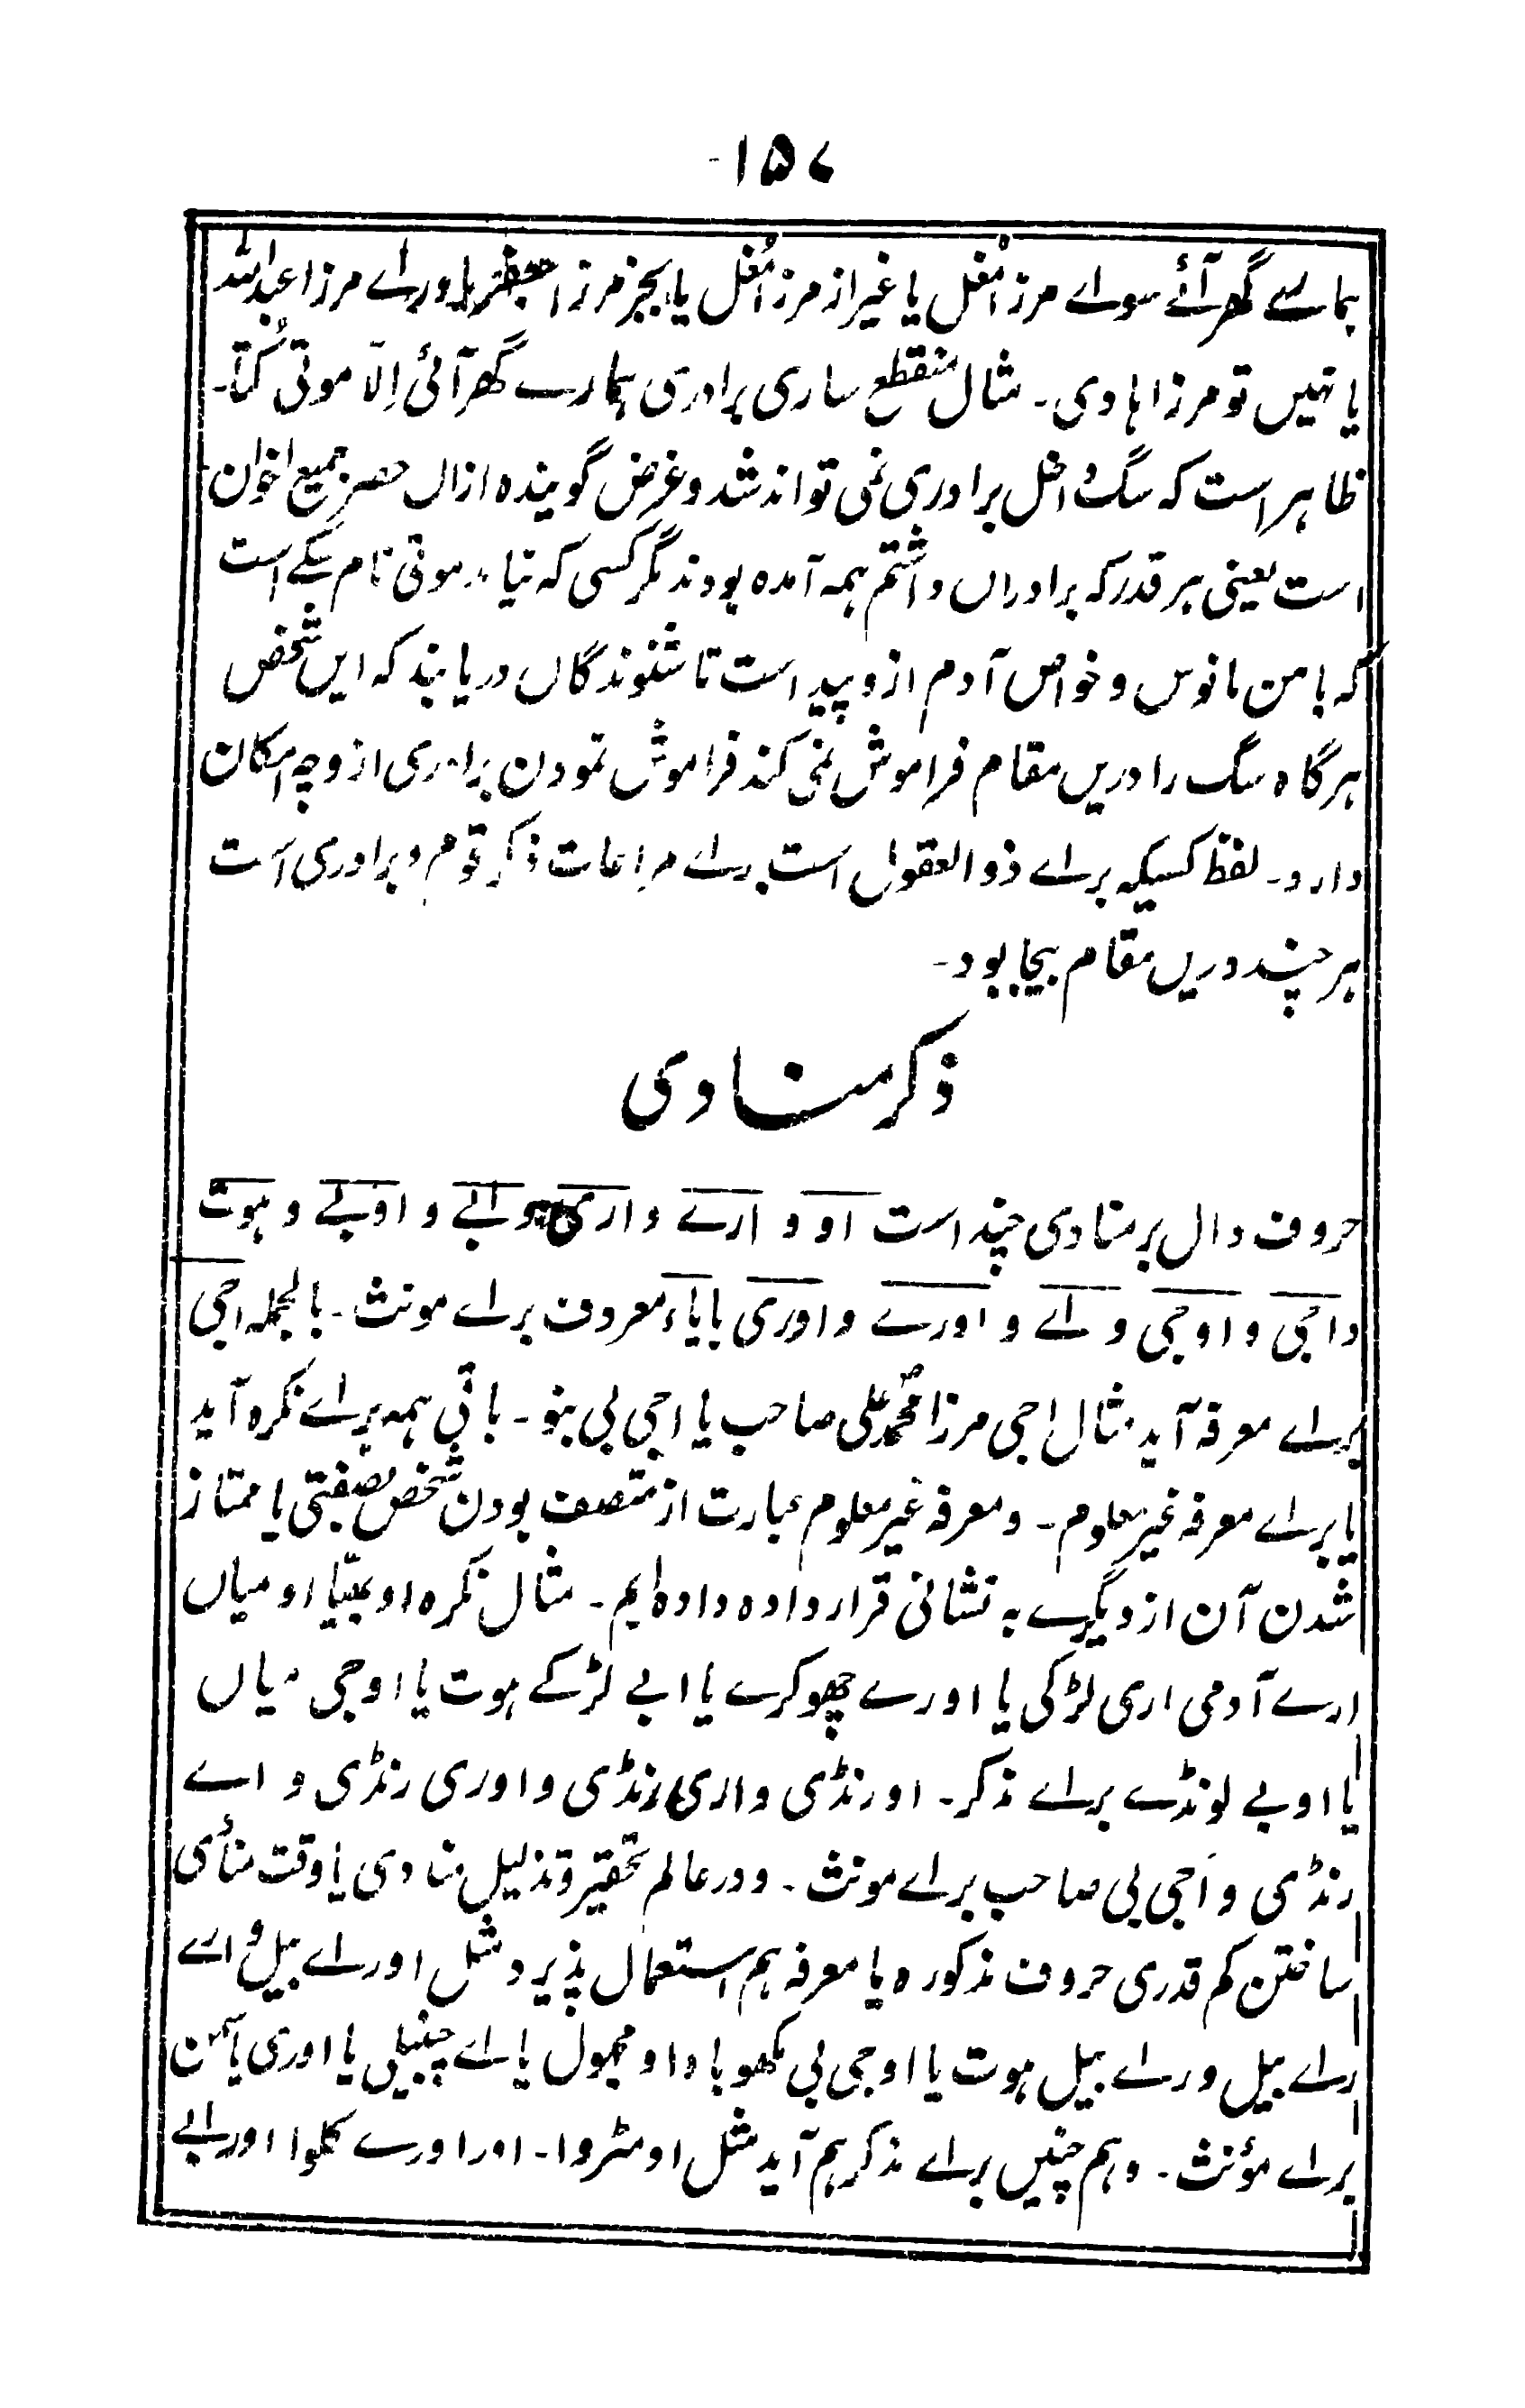 ۱۵۷-
ہمارے گھر آئے سواے مرزا مُغل یا غیر از مرزا مُغل یا بجز مرزا جعفر یا وراے مرزا عبداللہ
یا نہیں تو مرزا ہادی۔ مثال منقطع ساری برادری ہمارے گھر آئی اِلّا موتی کُتّا۔
ظاہر است کہ سگ داخل برادری نمی تواند شد و غرض گویندہ ازاں حصر جمیع اخوان
است یعنی ہر قدر کہ برادراں داشتم ہمہ آمدہ بودند مگر کسی کہ نیامد موتی نام سگے است
کہ با من مانوس و خواص آدم ازو پیداست تا شنوندگاں دریابند کہ ایں شخص
ہرگاہ سگ را دریں مقام فراموش نمی کند فراموش نمودن برادری از وچہ امکان
دارد۔ لفظ کسیکہ براے ذوالعقول است براے مراعات ذکر قوم و برادری است
ہر چند دریں مقام بیجا بود۔
ذکر منادی
حروف دال بر منادی چند است او و ارے و اری و ابے و اوبے و ہوت
و اجی و اوجی و اے و اورے و اوری با یاء معروف براے مونث۔ بالجملہ اجی
براے معرفہ آید مثال اجی مرزا محمد علی صاحب یا اجی بی بنو۔ باقی ہمہ براے نکرہ آید
یا براے معرفہ غیر معلوم۔ و معرفہ غیر معلوم عبارت از متصف بودن شخص بصفتی یا ممتاز
شدن آن از دیگرے بہ نشانی قرار دادہ دادہ ایم۔ مثال نکرہ او بھیّا او میاں
ارے آدمی اری لڑکی یا اورے چھوکرے یا ابے لڑکے ہوت یا اوجی میاں
یا اوبے لونڈے براے مذکر۔ او رنڈی و اری رنڈی و اوری رنڈی و اے
رنڈی و اَجی بی صاحب براے مونث۔ و در عالم تحقیر و تذلیل منادی یا وقت منادی
ساختن کم قدری حروف مذکورہ با معرفہ ہم استعمال پذیرد مثل او راے بیل و ارے
راے بیل و راے بیل ہوت یا اوجی بی مکھو با واو مجہول یا اے چنبیلی یا اوری یاسمن
براے مؤنث۔ و ہم چنیں براے مذکر ہم آید مثل او مٹروا۔ اور اورے کلوا اور ابے